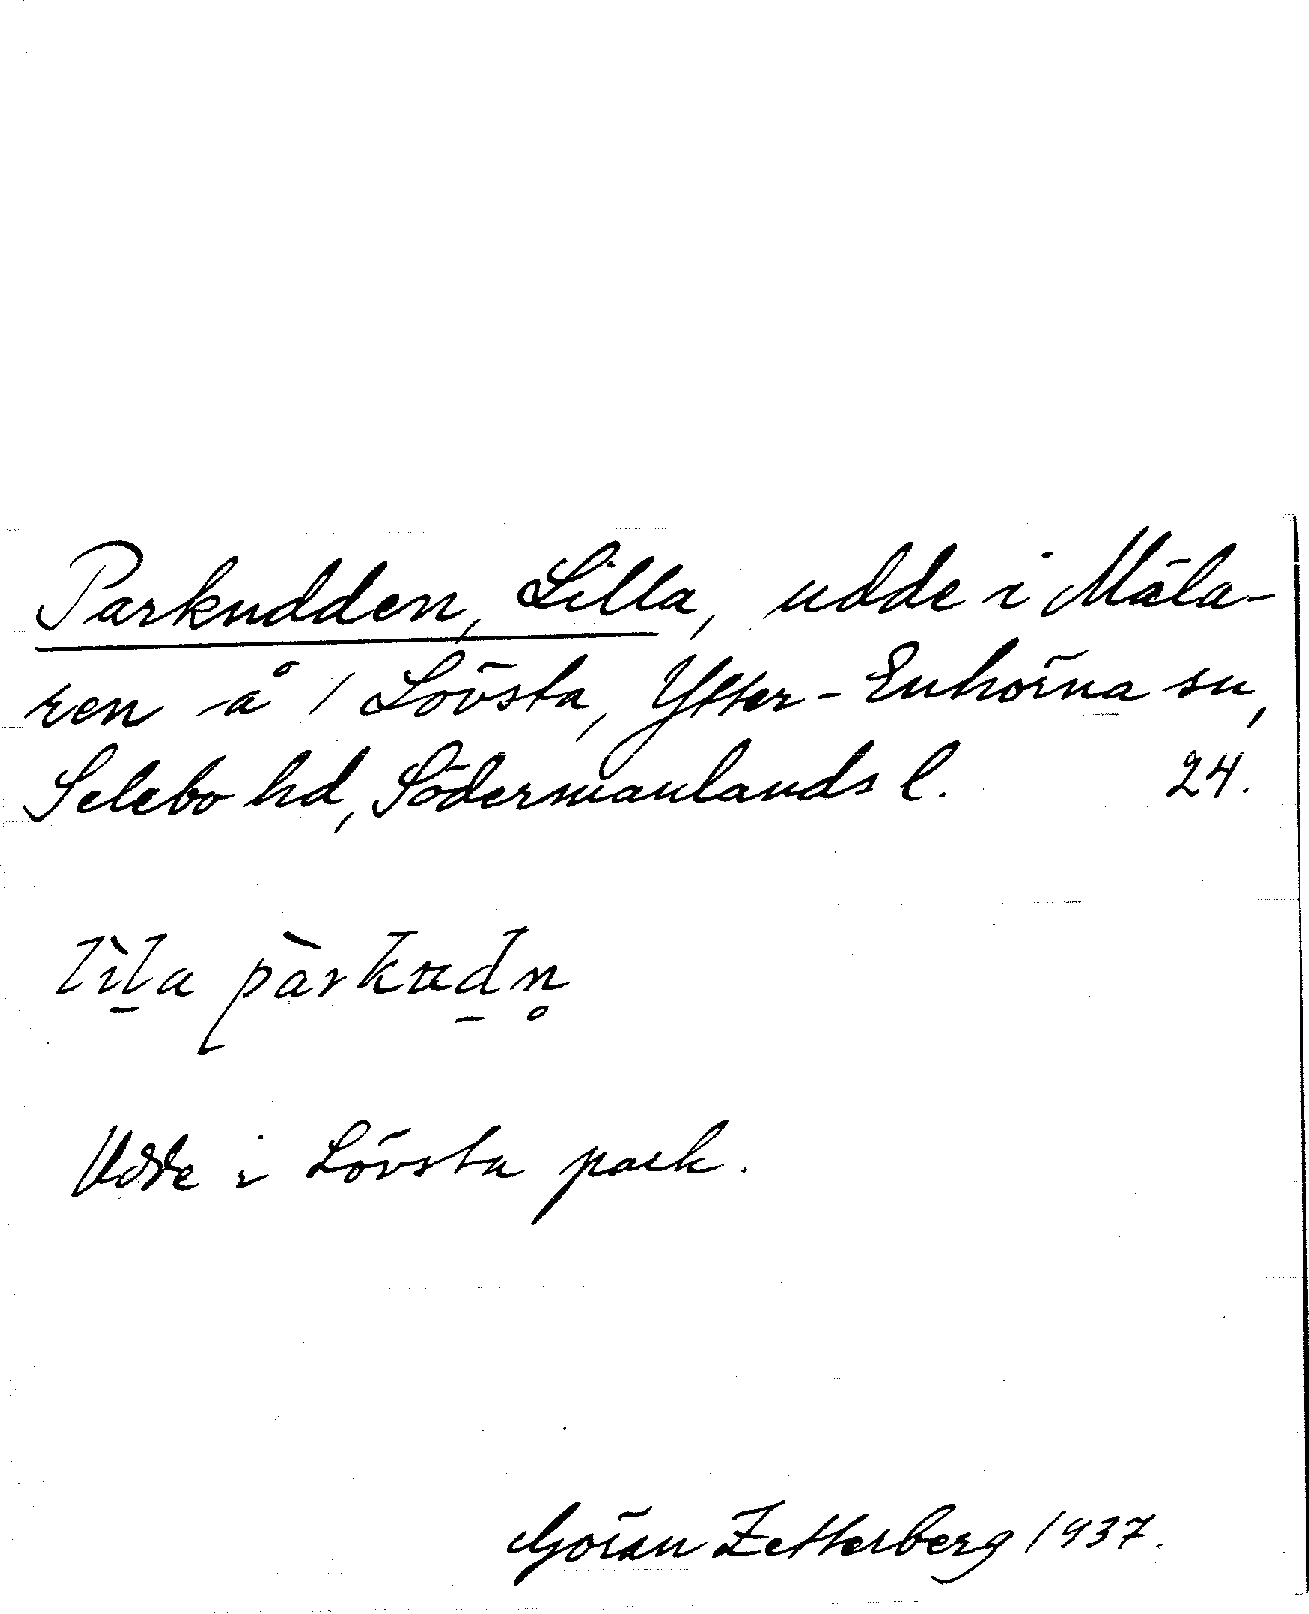 Parkudden, Lilla, udde i Mäla-
ren å 1 Lövsta, Ytter-Enhörna sn,
Selebo hd, Södermanlands l. 24.
lìl̠a pàrkud̠n̥
Udde i Lövsta park.
Göran Zetterberg 1937.